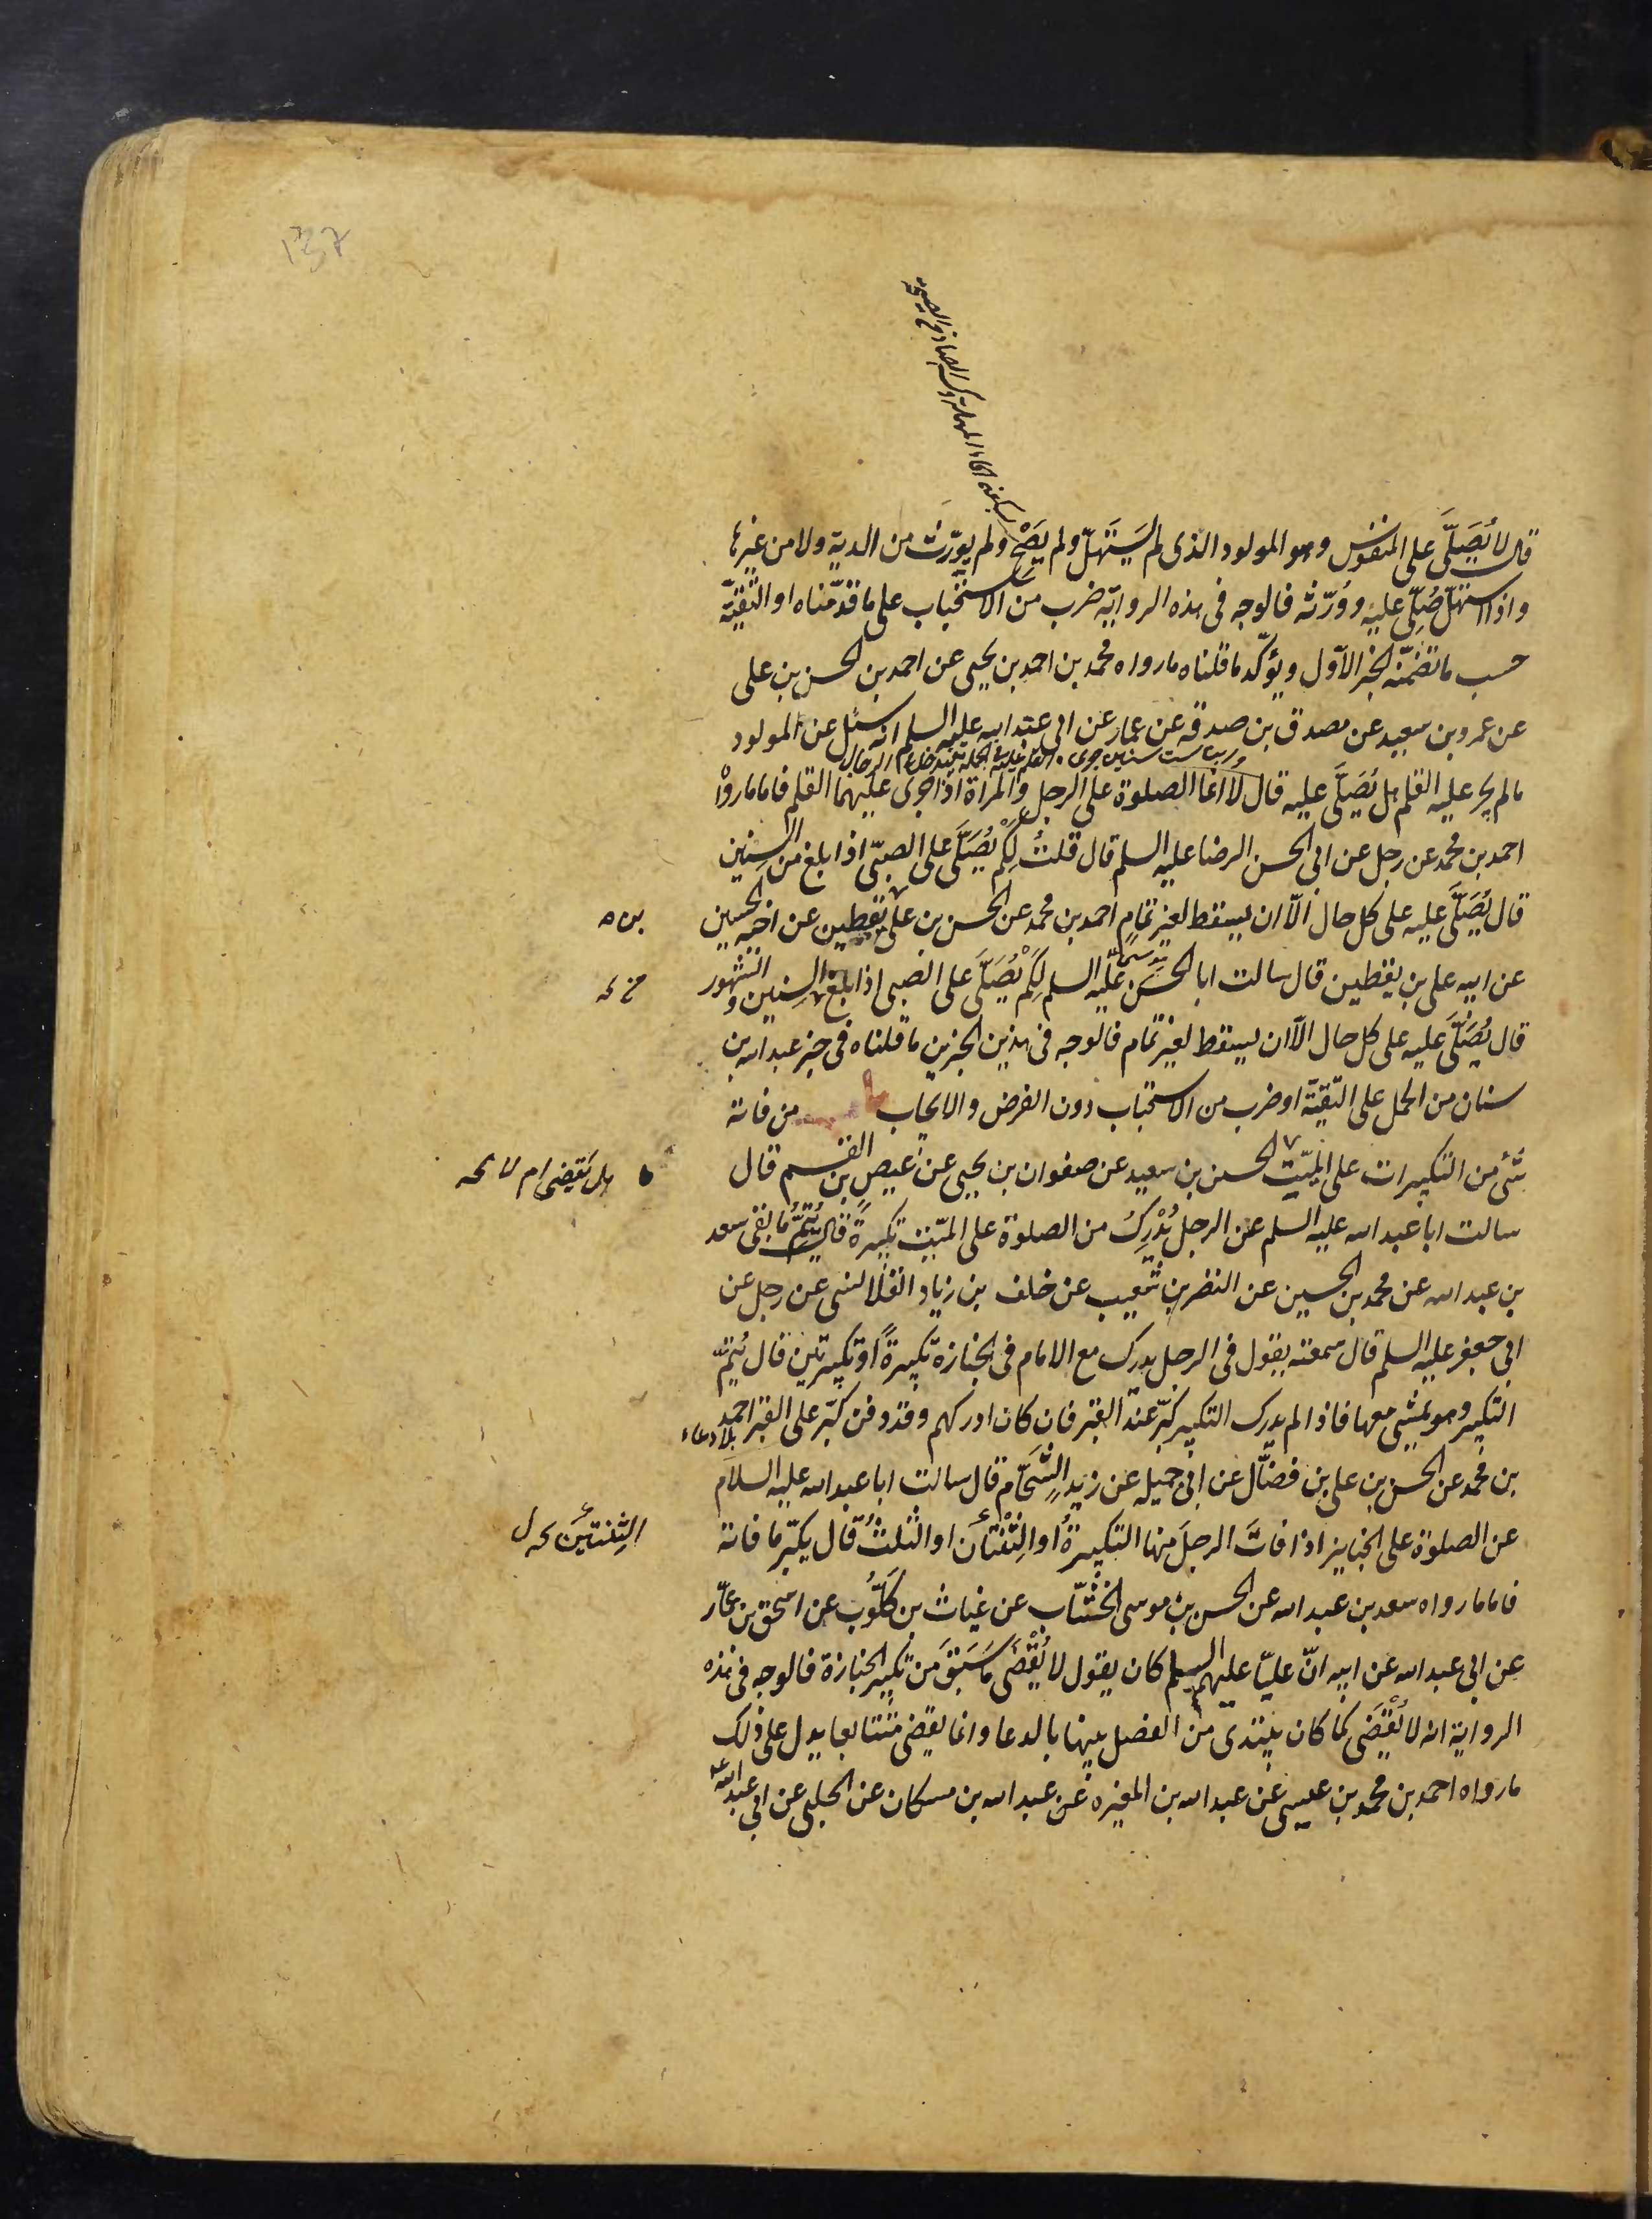 137
قال لا يُصَلَّى على المنفوس وهو المولود الذى لم يَسْتَهِلّ ولم يَصِحْ ولم يورّث من الدية ولا من غيرها
واذا استهلّ صُلِّىَ عليه وورّثه فالوجه فى هذه الرواية ضرب من الاستحباب على ما قدّمناه او التقيّة
حسب ما تضمّنه الخبر الاوّل ويؤكّد ما قلناه ما رواه محمد بن احمد بن يحيى عن احمد بن الحسن بن على
عن عمرو بن سعيد عن مصدق بن صدقه عن عمار عن ابى عبد الله عليه السلم انه سئل عن المولود
مالم يجر عليه القلم هل يُصَلَّى عليه قال لا انما الصلوة على الرجل والمرأة اذا جرى عليهما القلم فاما ما رواه
احمد بن محمد عن رجل عن ابى الحسن الرضا عليه السلم قال قلتُ لِكَمْ يُصَلَّى على الصبىّ اذا بلغ من السنين
قال يُصَلَّى عليه على كل حال الّا ان يسقط لغير تمامٍ احمد بن محمد عن الحسن بن على بن يقطين عن اخيه الحسين
عن ابيه على بن يقطين قال سالت ابا الحسن عليه السلم لِكَمْ يُصَلَّى على الصبى اذا بلغ السنين والشهور
قال يُصَلَّى عليه على كل حال الّا ان يسقط لغير تمام فالوجه فى هذين الخبرين ما قلناه فى خبر عبد الله بن
سنان من الحمل على التقيّة او ضرب من الاستحباب دون الفرض والايجاب من فاته
شئ من التكبيرات على الميّت الحسن بن سعيد عن صفوان بن يحيى عن عيص بن القسم قال
هل يقضى ام لا
سالت ابا عبد الله عليه السلم عن الرجل يُدْرِكُ من الصلوة على الميّت تكبيرةً قال يُتِمُّ ما بقى سعد
بن عبد الله عن محمد بن الحسين عن النضر بن شعيب عن خلف بن زياد القلانسى عن رجل عن
ابى جعفر عليه السلم قال سمعته يقول فى الرجل يدرك مع الامام فى الجنازة تكبيرةً او تكبيرتين قال يُتِمّ
التكبير وهو يمشى معها فاذا لم يدرك التكبير كبّر عند القبر فان كان ادركهم وقد دفن كبّر على القبر احمد
بلا دعاء
بن محمد عن الحسن بن على بن فضّال عن ابى جميله عن زيدٍ الشحّام قال سالت ابا عبد الله عليه السلام
عن الصلوة على الجنايز اذا فاتَ الرجلَ منها التكبيرةُ او الثِّنْتان او الثلثُ قال يكبّر ما فاته
الثِنتين
فاما ما رواه سعد بن عبد الله عن الحسن بن موسى الخشّاب عن غياث بن كلّوب عن اسحق بن عمّار
عن ابى عبد الله عن ابيه انّ عليّا عليهم السلم كان يقول لا يُقْضَى ما سَبَقَ من تكبير الجنازة فالوجه فى هذه
الرواية انه لا يُقْضَى كما كان يبتدى من الفصل بينها بالدعا وانما يقضى متتابعا يدل على ذلك
ما رواه احمد بن محمد بن عيسى عن عبد الله بن المغيره عن عبد الله بن مسكان عن الحلبى عن ابى عبد الله